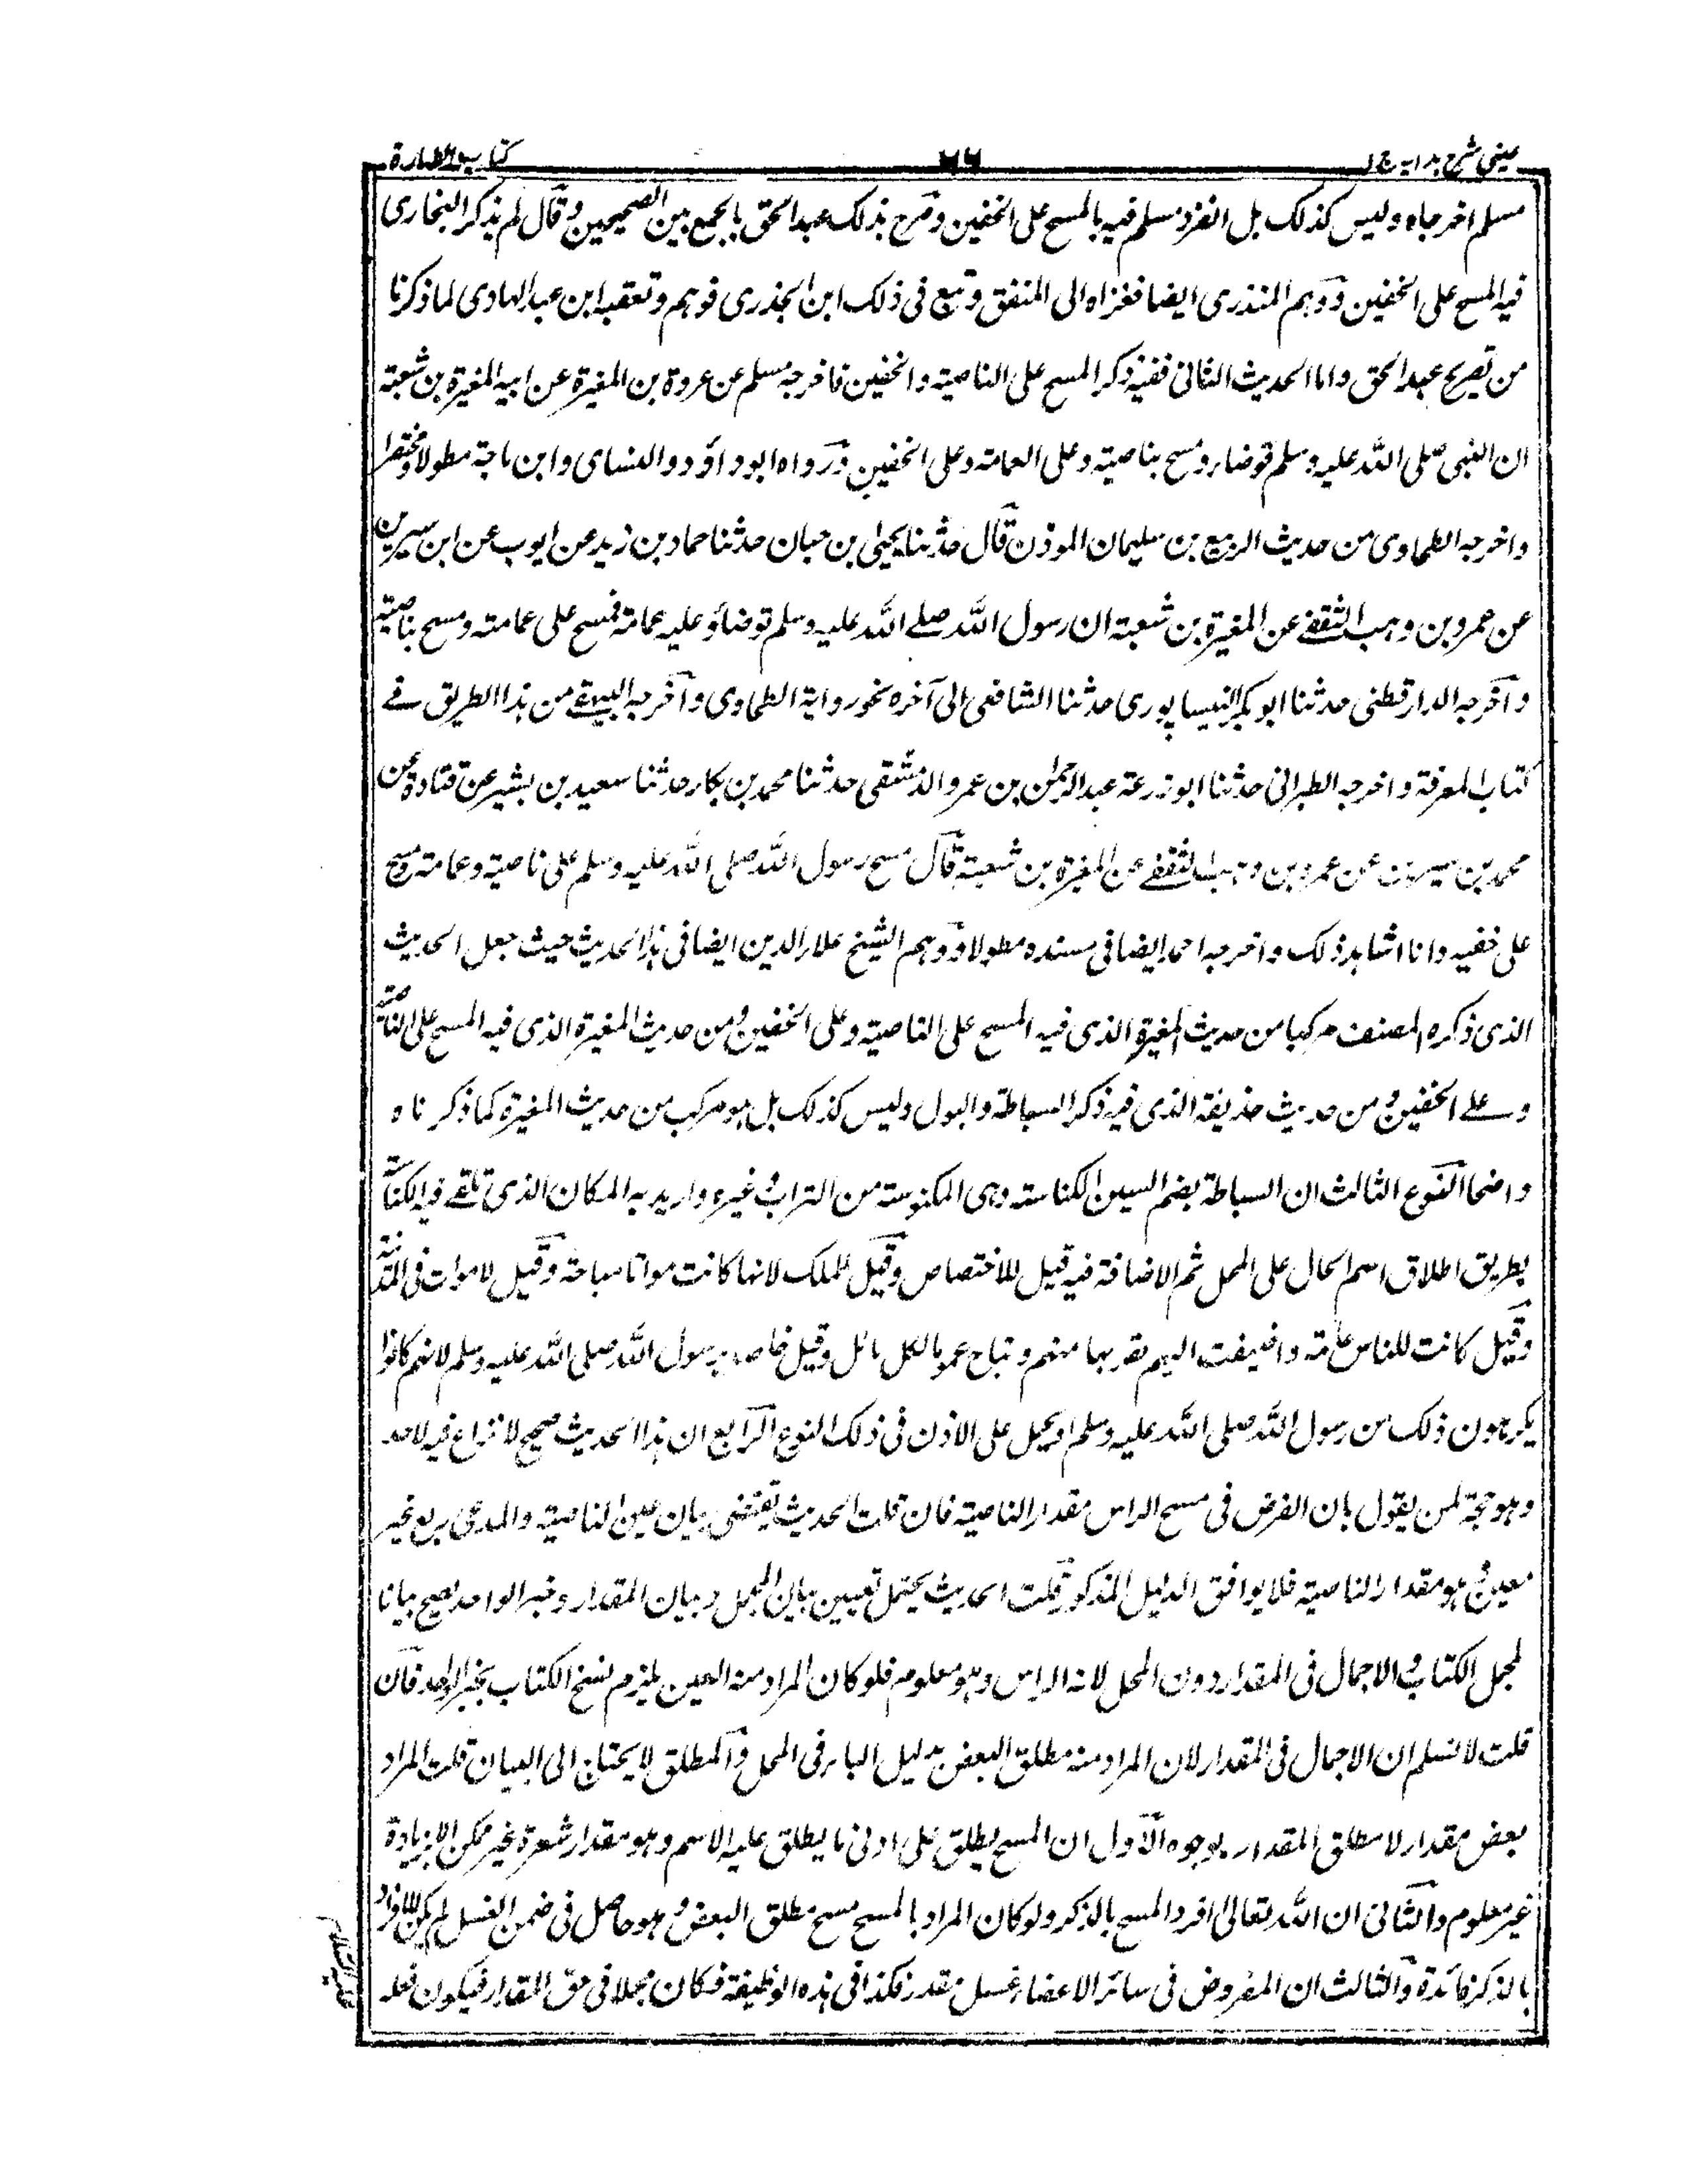 عینی شرح ہدایہ ج ۱
۷۶
کتاب الطهارة
مسلم اخرجاه وليس كذلك بل انفرد مسلم فيه بالمسح على الخفين وصرح بذلك عبد الحق بالجمع بين الصحيحين وقال لم يذكر البخارى
فيه المسح على الخفين ووهم المنذرى ايضا فعزاه الى المتفق وتبع فى ذلك ابن الجذرى فوهم وتعقبه ابن عبد الهادى لما ذكرنا
من تصريح عبد الحق واما الحديث الثانى ففيه ذكر المسح على الناصية والخفين فاخرجه مسلم عن عروة بن المغيرة عن ابيه المغيرة بن شعبة
ان النبى صلى الله عليه وسلم توضاء ومسح بناصيته وعلى العمامة وعلى الخفين ورواه ابو داؤد والنساى وابن ماجة مطولا ومختصرا
واخرجه الطحاوى من حديث الربيع بن سليمان الموذن قال حدثنا يحيىٰ بن حبان حدثنا حماد بن زيد عن ايوب عن ابن سيرين
عن عمرو بن وهب الثقفے عن المغيرة بن شعبة ان رسول الله صلے الله عليه وسلم توضأ وعليه عمامة فمسح على عمامته ومسح بناصيته
واخرجه الدارقطنى حدثنا ابو بكر النيساپورى حدثنا الشافعى الى آخره نحو رواية الطحاوى واخرجه البيهقے من هذا الطريق فے
كتاب المعرفة واخرجه الطبرانى حدثنا ابو زرعة عبد الرحمٰن بن عمرو الدمشقى حدثنا محمد بن بكار حدثنا سعيد بن بشير عن قتادة عن
محمد بن سيرين عن عمرو بن وهب الثقفے عن المغيرة بن شعبة قال مسح رسول الله صلى الله عليه وسلم على ناصية وعمامة ومسح
على خفيه وانا اشاهد ذلك واخرجه احمد ايضا فى مسنده مطولا ووهم الشيخ علاء الدين ايضا فى هذا الحديث حيث جعل الحديث
الذى ذكره المصنف مركبا من حديث المغيرة الذى فيه المسح على الناصية وعلى الخفين ومن حديث المغيرة الذى فيه المسح على الناصية
وعلے الخفين ومن حديث حذيفة الذى فيه ذكر السباطة والبول وليس كذلك بل هو مركب من حديث المغيرة كما ذكرناه
واضحا النوع الثالث ان السباطة بضم السين الكناسته وهى المكنوسته من التراب وغيره واريد به المكان الذى تلقے فيه الكناسته
بطريق اطلاق اسم الحال على المحل ثم الاضافة فيه قيل للاختصاص وقيل للملك لانها كانت مواتا مباحة وقيل لاموات فى المدينة
وقيل كانت للناس عامة واضيفت اليهم بقربها منهم وتباح عموما لكل بائل وقيل خاصه برسول الله صلى الله عليه وسلم لانهم كانوا
يكرهون ذلك من رسول الله صلى الله عليه وسلم او يحمل على الاذن فى ذلك النوع الرابع ان هذا الحديث صحيح لا نزاع فيه لاحد
وهو حجة لمن يقول بان الفرض فى مسح الراس مقدار الناصية فان قلت الحديث يقتضى بيان عين الناصية والمدعى ربع غير
معين وهو مقدار الناصية فلا يوافق الدليل المذكور قلت الحديث يحتمل تعيين بيان المجمل وبيان المقدار وخبر الواحد يصح بيانا
لمجمل الكتاب والاجمال فى المقدار دون المحل لانه الراس وهو معلوم فلو كان المراد منه العين يلزم نسخ الكتاب بخبر الواحد فان
قلت لا نسلم ان الاجمال فى المقدار لان المراد منه مطلق البعض بدليل الباء فى المحل والمطلق لا يحتاج الى البيان قلت المراد
بعض مقدار لا مطلق المقدار بوجوه الاول ان المسح يطلق على ادنى ما يطلق عليه الاسم وهو مقدار شعرة غير ممكن الا بزيادة
غير معلوم والثانى ان الله تعالىٰ افرد المسح بالذكر ولو كان المراد بالمسح مسح مطلق البعض وهو حاصل فى ضمن الغسل لم يكن للافراد
بالذكر فائدة والثالث ان المفروض فى سائر الاعضاء غسل مقدر فكذا فى هذه الوظيفة فكان مجملا فى حق المقدار فيكون فعله
عليه السلام